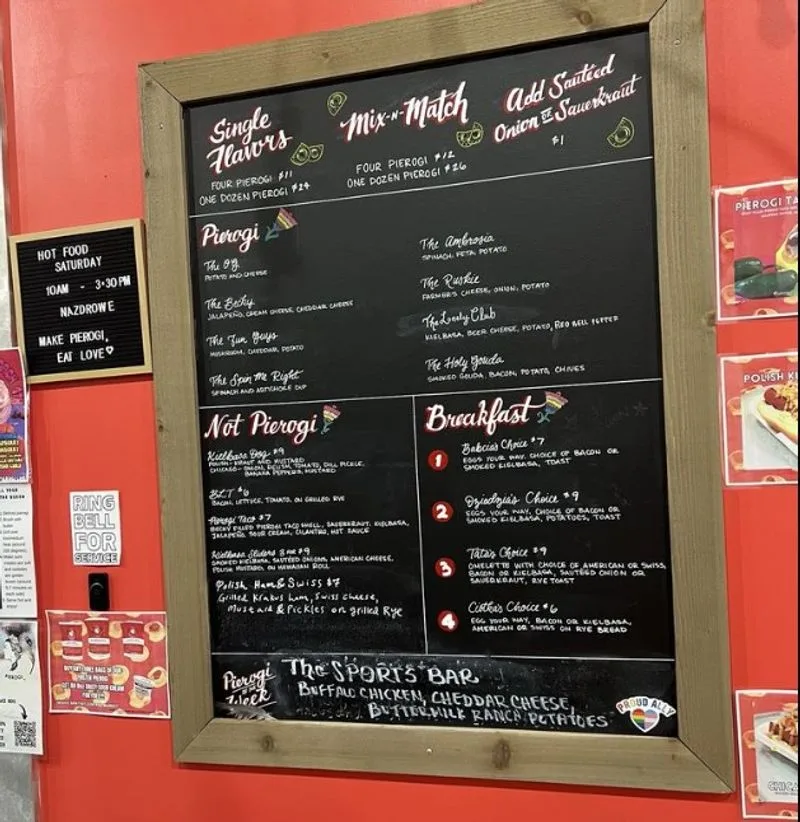 Single
Flavors
FOUR PIEROGI $11
ONE DOZEN PIEROGI $24
Mix-n-Match
FOUR PIEROGI $12
ONE DOZEN PIEROGI $26
Add Sautéed
Onion or Sauerkraut
$1
Pierogi
The OG
POTATO AND CHEESE
The Becky
JALAPEÑO, CREAM CHEESE, CHEDDAR CHEESE
The Fun Guys
MUSHROOM, CHEDDAR, POTATO
The Spin Me Right
SPINACH AND ARTICHOKE DIP
The Ambrosia
SPINACH, FETA, POTATO
The Ruskie
FARMERS CHEESE, ONION, POTATO
The Lonely Club
KIELBASA, BEER CHEESE, POTATO, RED BELL PEPPER
The Holy Gouda
SMOKED GOUDA, BACON, POTATO, CHIVES
Not Pierogi
Kielbasa Dog $9
POLISH- KRAUT AND MUSTARD
CHICAGO- ONION, RELISH, TOMATO, DILL PICKLE,
BANANA PEPPERS, MUSTARD
BLT $6
BACON, LETTUCE, TOMATO, ON GRILLED RYE
Pierogi Taco $7
BECKY FILLED PIEROGI TACO SHELL, SAUERKRAUT, KIELBASA,
JALAPEÑO, SOUR CREAM, CILANTRO, HOT SAUCE
Kielbasa Sliders 3 for $9
SMOKED KIELBASA, SAUTÉED ONIONS, AMERICAN CHEESE,
POLISH MUSTARD, ON HAWAIIAN ROLL
Polish Ham & Swiss $7
Grilled Krakus ham, Swiss cheese,
Mustard & Pickles on grilled Rye
Breakfast
1
Babcia's Choice $7
EGGS YOUR WAY, CHOICE OF BACON OR
SMOKED KIELBASA, TOAST
2
Dziadzia's Choice $9
EGGS YOUR WAY, CHOICE OF BACON OR
SMOKED KIELBASA, POTATOES, TOAST
3
Tata's Choice $9
OMELETTE WITH CHOICE OF AMERICAN OR SWISS,
BACON OR KIELBASA, SAUTÉED ONION OR
SAUERKRAUT, RYE TOAST
4
Ciotka's Choice $6
EGG YOUR WAY, BACON OR KIELBASA,
AMERICAN OR SWISS ON RYE BREAD
Pierogi
of the
Week
The SPORTS BAR
BUFFALO CHICKEN, CHEDDAR CHEESE,
BUTTERMILK RANCH POTATOES
PROUD ALLY
HOT FOOD
SATURDAY
10AM - 3:30PM
NAZDROWE
MAKE PIEROGI,
EAT LOVE♡
RING
BELL
FOR
SERVICE
PIEROGI TA
POLISH K
CHIC